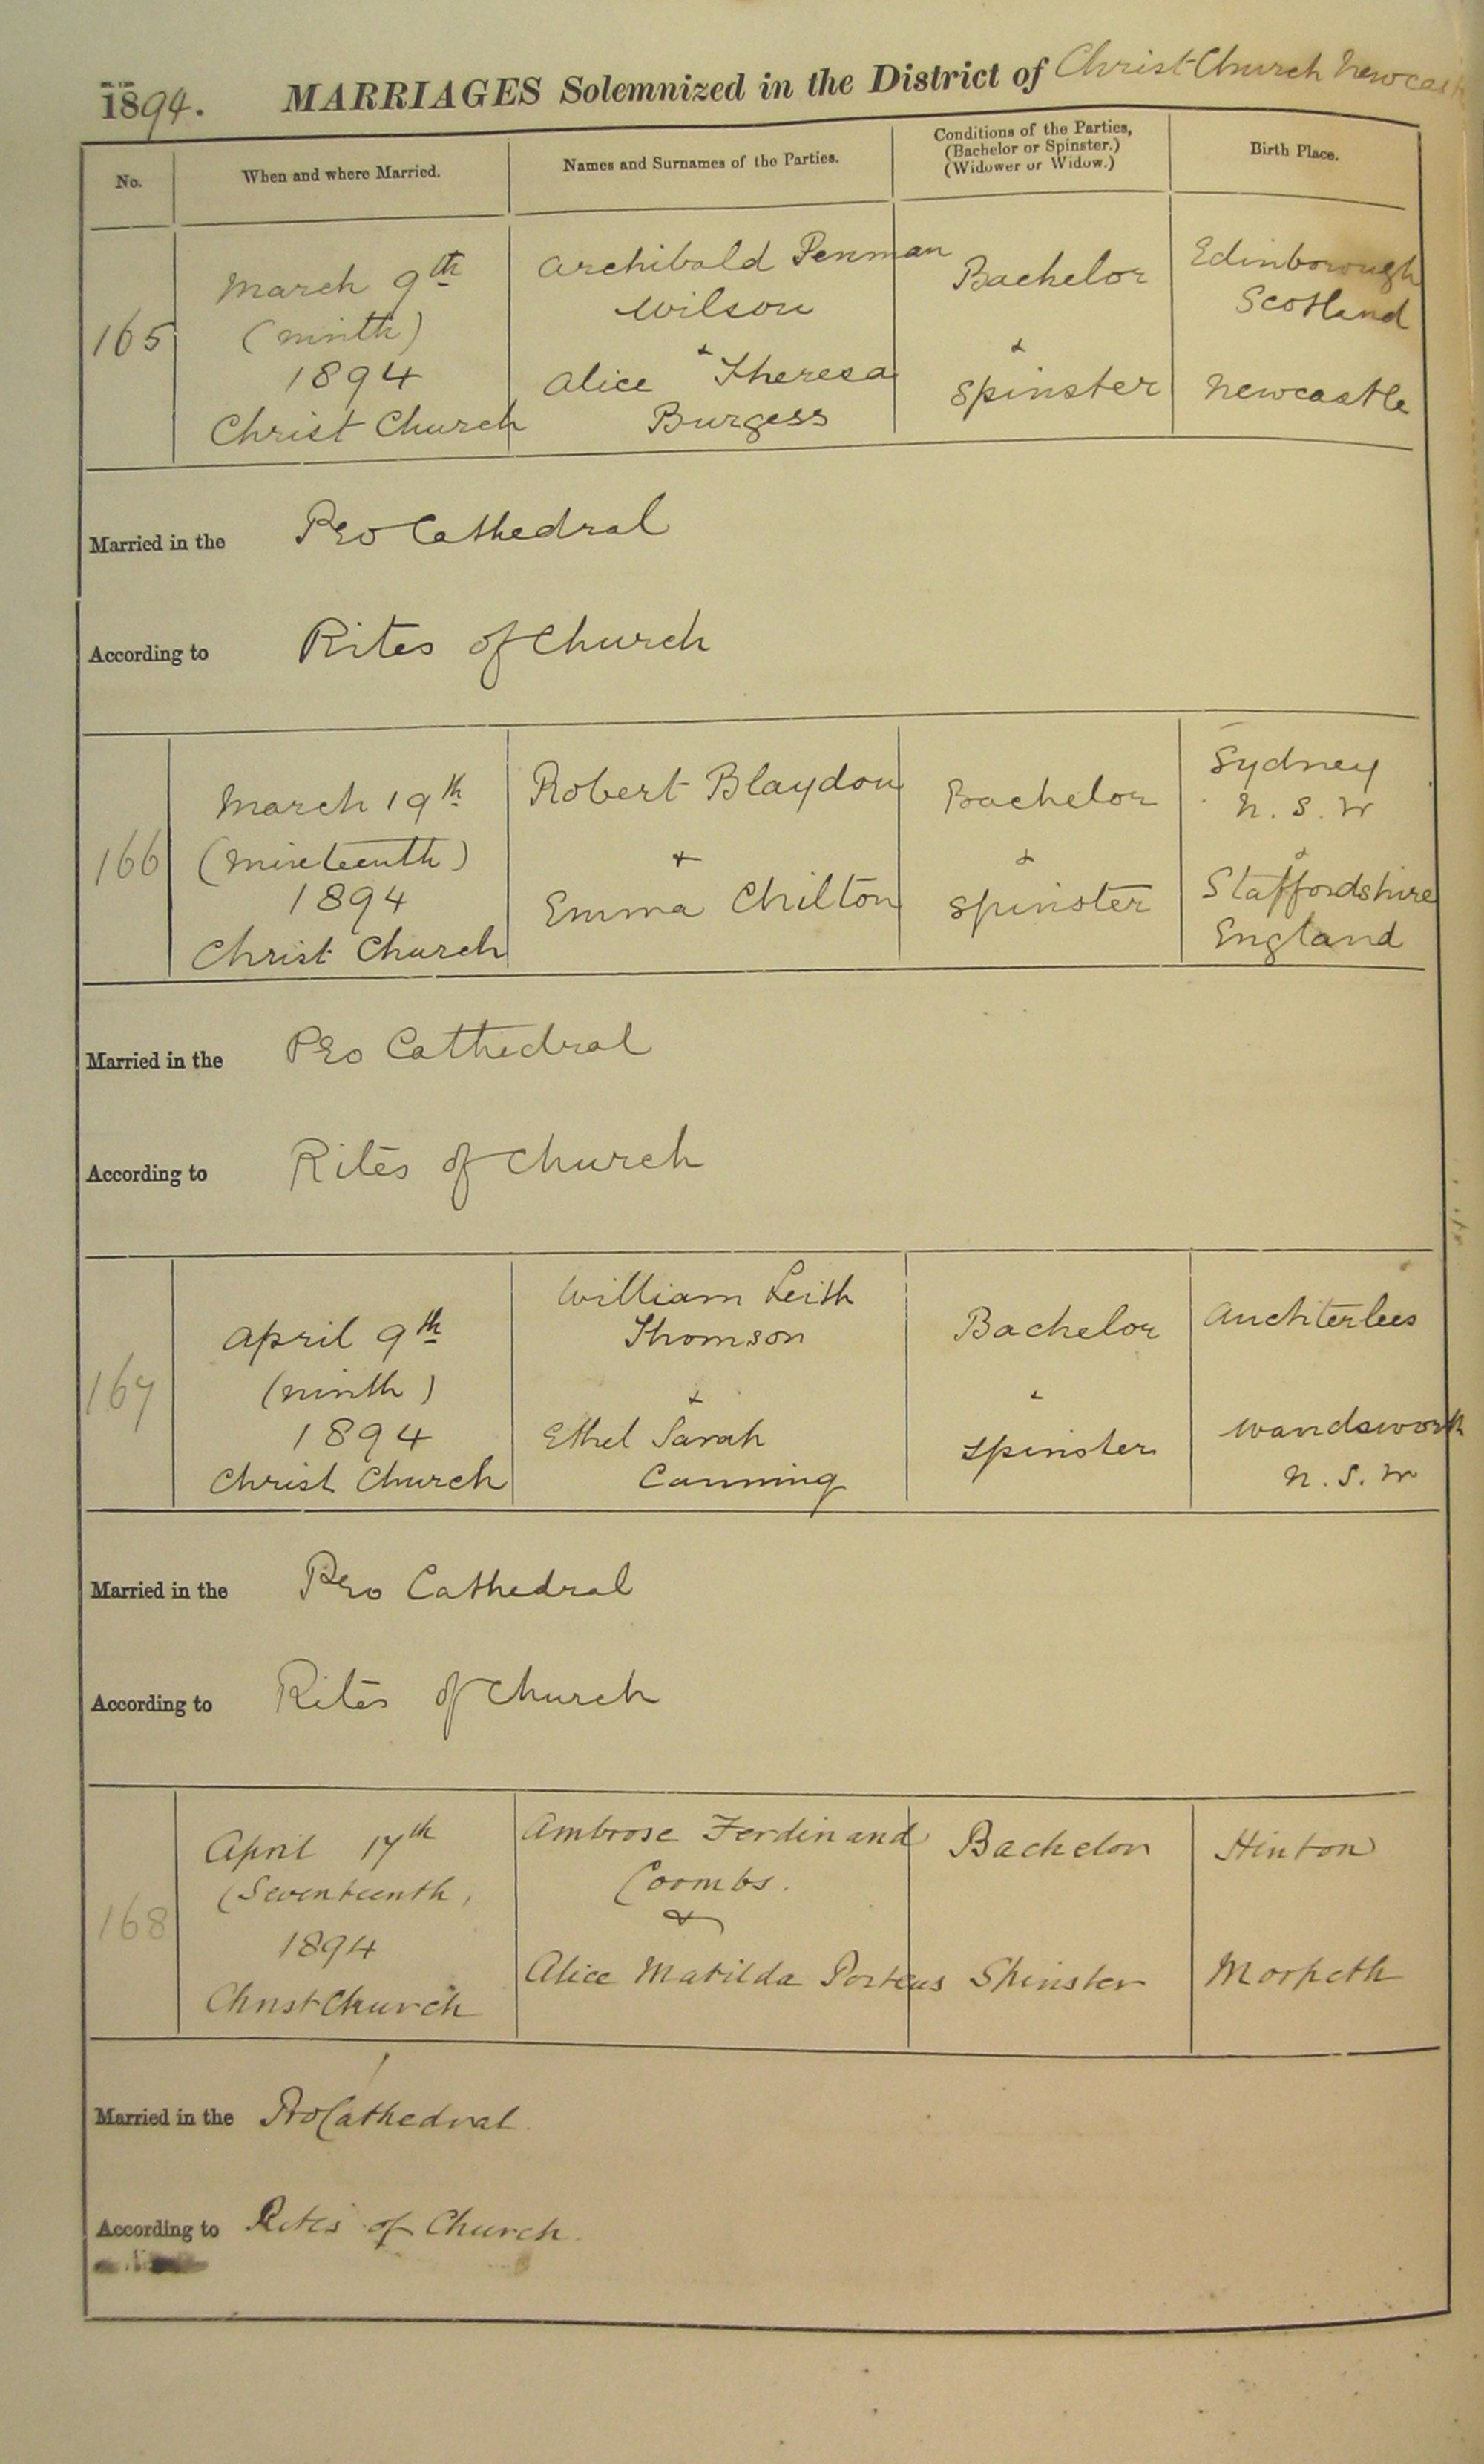 1894. MARRIAGES Solemnized in the District of Christ Church Newcast
No. When and where Married. Names and Surnames of the Parties. Conditions of the Parties, (Bachelor or Spinster.) (Widower or Widow.) Birth Place.
165
March 9th
(ninth)
1894
Christ Church
Archibald Penman
Wilson
+
Alice Theresa
Burgess
Bachelor
+
Spinster
Edinborough
Scotland
Newcastle
Married in the Pro Cathedral
According to Rites of Church
166
March 19th
(nineteenth)
1894
Christ Church
Robert Blaydon
+
Emma Chilton
Bachelor
+
Spinster
Sydney
N. S. W
+
Staffordshire
England
Married in the Pro Cathedral
According to Rites of Church
167
April 9th
(ninth)
1894
Christ Church
William Leith
Thomson
+
Ethel Sarah
Canning
Bachelor
+
Spinster
Auchterlees
Wandsworth
N. S. W
Married in the Pro Cathedral
According to Rites of Church
168
April 17th
(Seventeenth,
1894
Christ Church
Ambrose Ferdinand
Coombs.
&
Alice Matilda Porteus
Bachelor
Spinster
Hinton
Morpeth
Married in the Pro Cathedral
According to Rites of Church